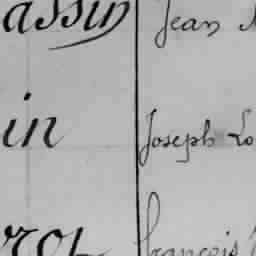 assin Jean
in Joseph Lo
rot françois